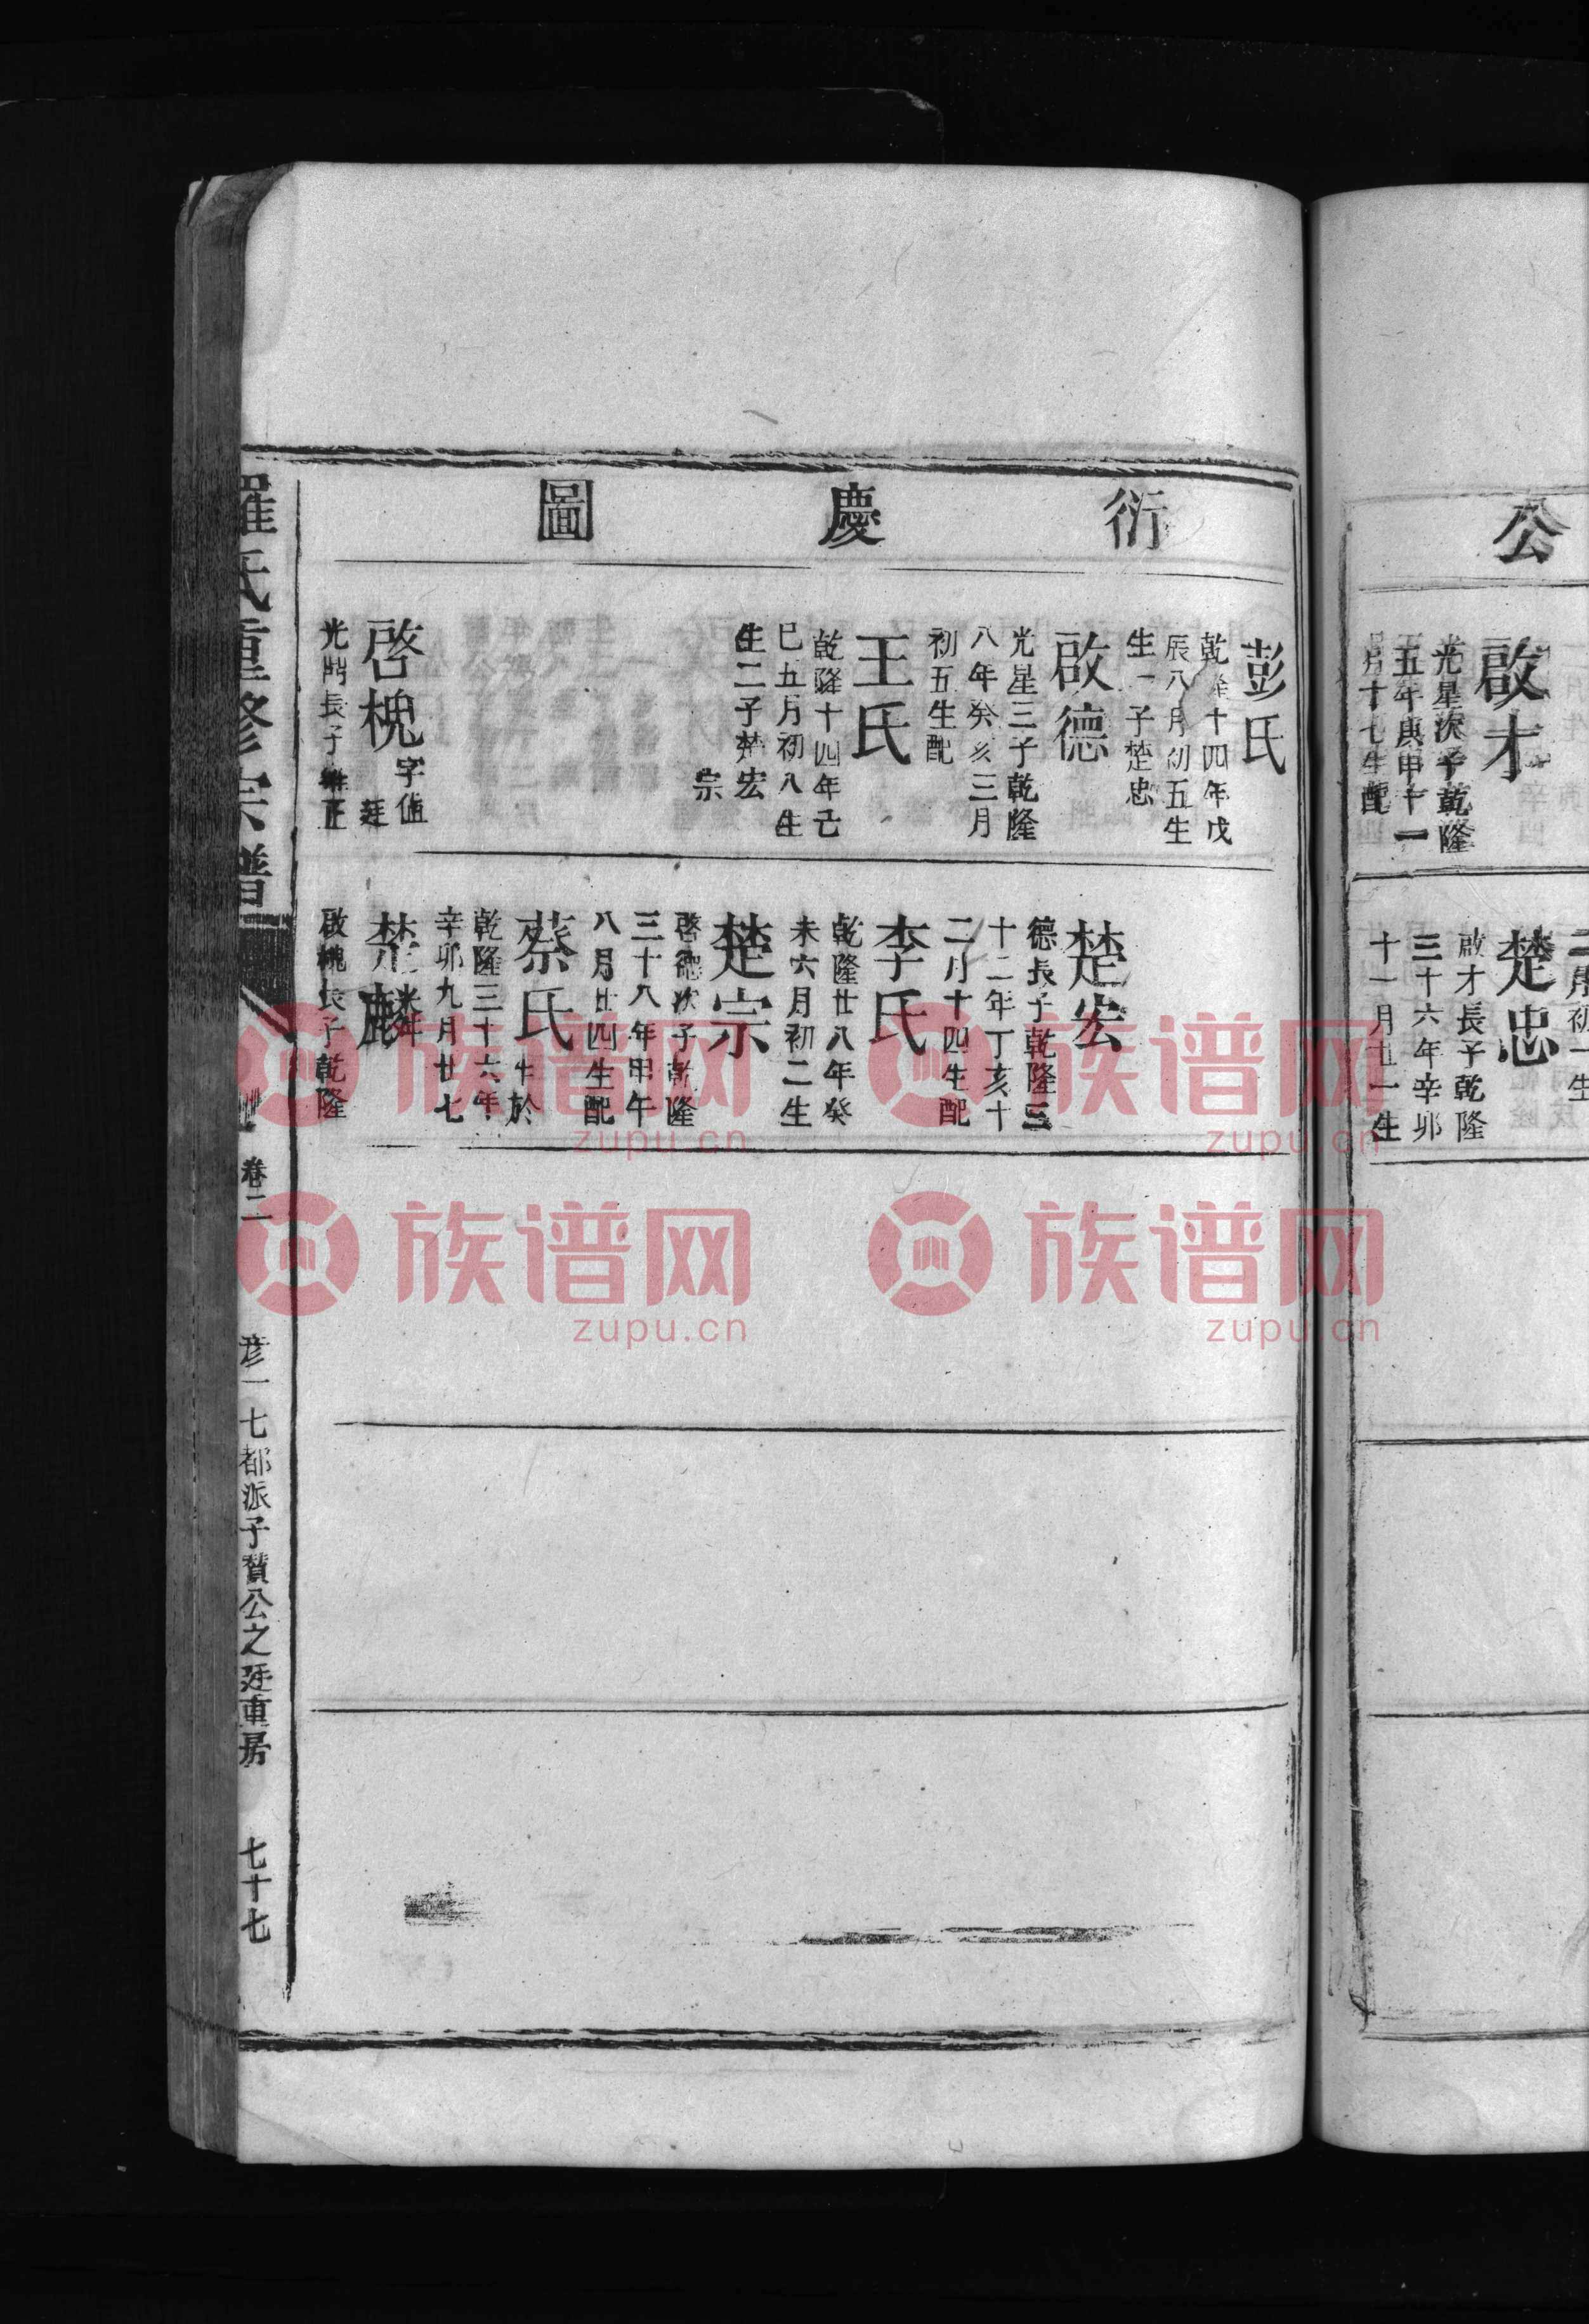 公
啟才
光星次子乾隆
五年庚申十一
月十七生配
二月初一生
楚忠
啟才長子乾隆
三十六年辛卯
十一月廿一生
衍慶圖
彭氏
乾隆十四年戊
辰八月初五生
生一子楚忠
啟德
光星三子乾隆
八年癸亥三月
初五生配
王氏
乾隆十四年己
巳五月初八生
生二子楚宏
宗
啓槐字值
廷
光
長子雍正
楚宏
德長子乾隆三
十二年丁亥十
二月十四生配
李氏
乾隆廿八年癸
未六月初二生
楚宗
啓德次子乾隆
三十八年甲午
八月廿四生配
蔡氏
生於
乾隆三十六年
辛卯九月廿七
楚麟
啟槐長子乾隆
羅氏重修宗譜
卷二
彦一七都派子贊公之廷重房
七十七
族谱网
zupu.cn
族谱网
zupu.cn
族谱网
zupu.cn
族谱网
zupu.cn